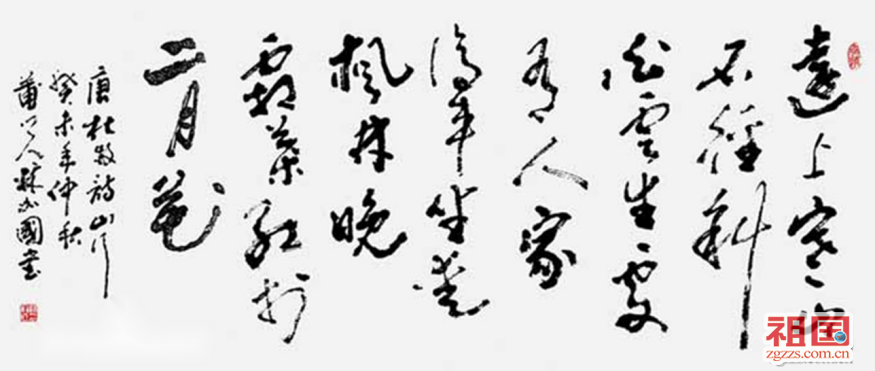 遠上寒山
石徑斜
白雲生處
有人家
停車坐愛
楓林晚
霜葉紅於
二月花
唐杜牧詩山行
癸未年仲秋
莆人林國書
祖国
zgzzs.com.cn